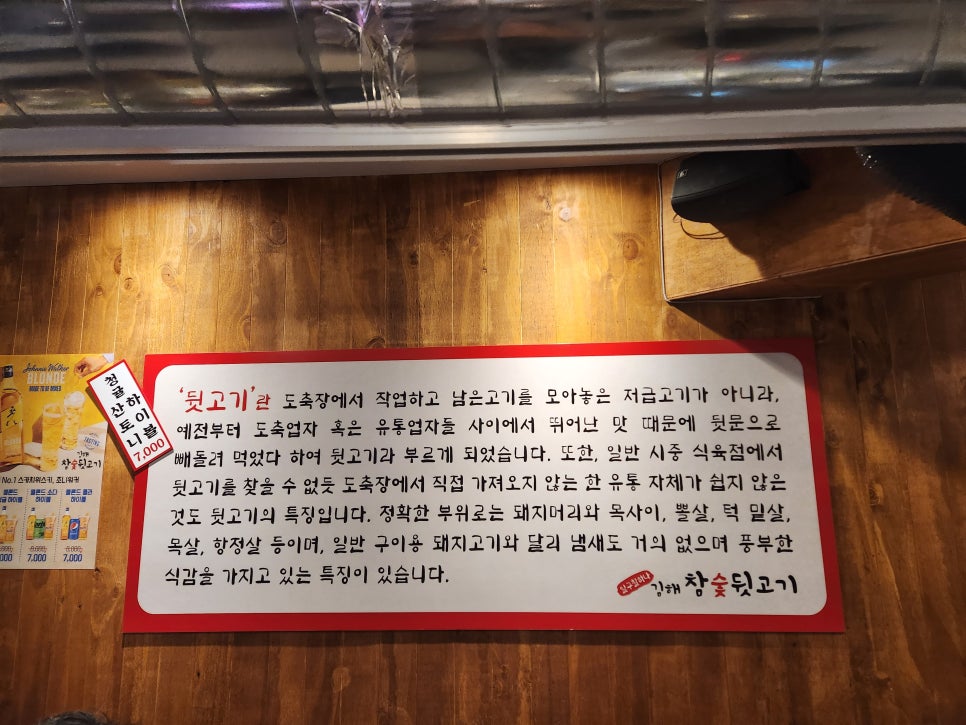 '뒷고기'란 도축장에서 작업하고 남은고기를 모아놓은 저급고기가 아니라,
예전부터 도축업자 혹은 유통업자들 사이에서 뛰어난 맛 때문에 뒷문으로
빼돌려 먹었다 하여 뒷고기라 부르게 되었습니다. 또한, 일반 시중 식육점에서
뒷고기를 찾을 수 없듯 도축장에서 직접 가져오지 않는 한 유통 자체가 쉽지 않은
것도 뒷고기의 특징입니다. 정확한 부위로는 돼지머리와 목사이, 뽈살, 턱 밑살,
목살, 항정살 등이며, 일반 구이용 돼지고기와 달리 냄새도 거의 없으며 풍부한
식감을 가지고 있는 특징이 있습니다.
김해 참숯뒷고기
청귤산토니
하이볼
7,000
Johnnie Walker
BLONDE
MADE TO BE MIXED
김해
참숯뒷고기
No.1 스카치위스키, 조니워커
블론드 소다
하이볼
블론드 콜라
하이볼
7,000
7,000